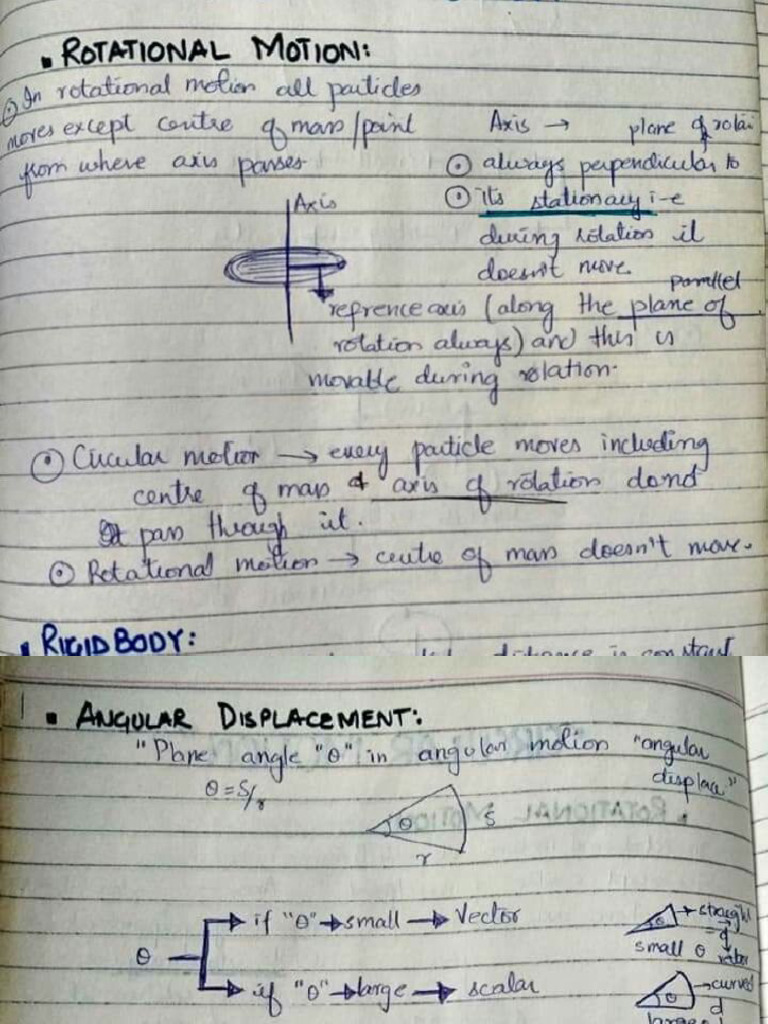 ▪ ROTATIONAL MOTION:
⊙ In rotational motion all particles
moves except centre of mass/point
from where axis passes
Axis → plane of rotai
⊙ always perpendicular to
⊙ its stationary i-e
during rotation it
doesn't move.
Axis
parallel
refrence axis (along the plane of
rotation always) and this is
movable during rotation.
⊙ Circular motion → every particle moves including
centre of mass & axis of rotation
pass through it.
⊙ Rotational motion → centre of mass doesn't move.
▪ RIGID BODY:
distance is constant
▪ ANGULAR DISPLACEMENT:
"Plane angle "θ" in angular motion "angular
displace"
θ = S/r
θ S
r
θ
if "θ" → small → Vector
if "θ" → large → scalar
θ → straight
d
small θ
θ → curved
d